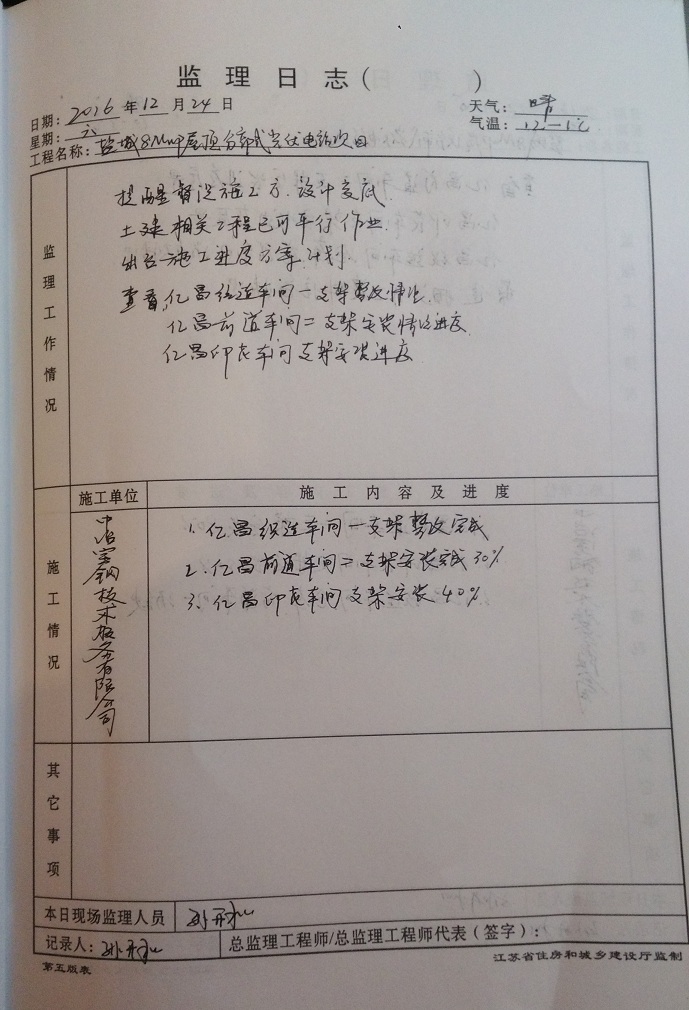 监理日志( )
日期: 2016 年 12 月 24 日
天气: 晴
星期: 六
气温: 12—1℃
工程名称: 盐城8MWP屋顶分布式光伏电站项目
监理工作情况
提醒督促施工方.设计交底
土建相关工程已可平行作业
出台施工进度方案、计划.
查看,亿昌织造车间一支架整改情况.
亿昌前道车间二支架安装情况进度.
亿昌印花车间支架安装进度
施工情况
施工单位
施工内容及进度
中冶宝钢技术服务有限公司
1.亿昌织造车间一支架整改完成
2.亿昌前道车间二支架安装完成30%
3.亿昌印花车间支架安装40%
其它事项
本日现场监理人员
记录人:
总监理工程师/总监理工程师代表(签字):
第五版表
江苏省住房和城乡建设厅监制